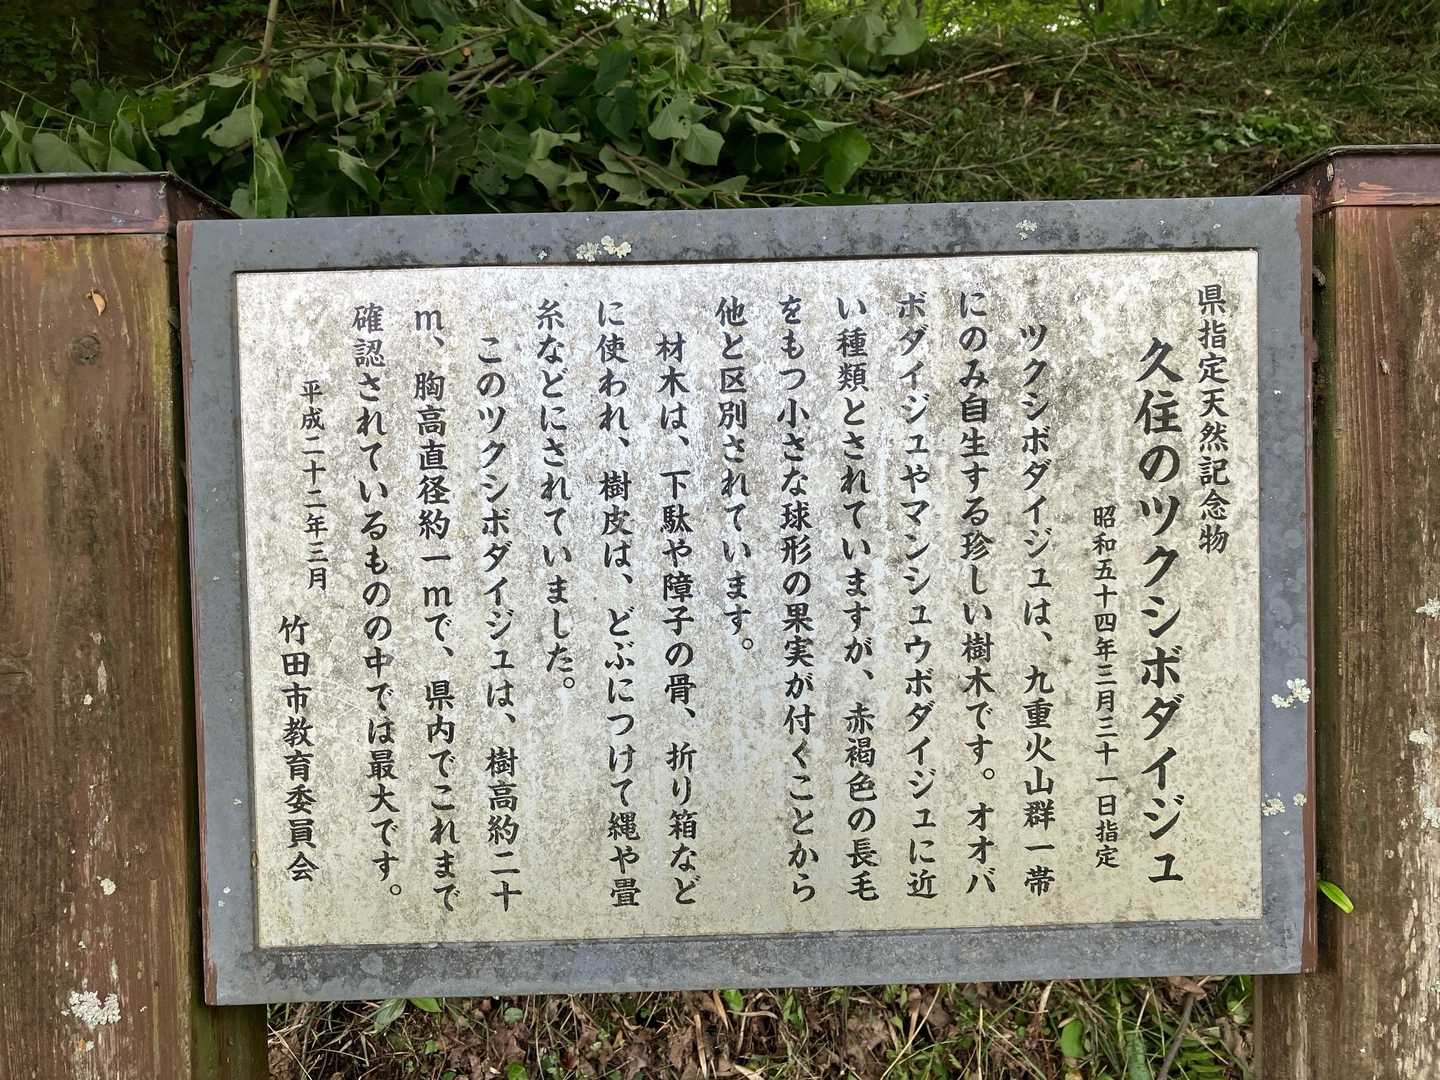 県指定天然記念物
久住のツクシボダイジュ
昭和五十四年三月三十一日指定
ツクシボダイジュは、九重火山群一帯
にのみ自生する珍しい樹木です。オオバ
ボダイジュやマンシュウボダイジュに近
い種類とされていますが、赤褐色の長毛
をもつ小さな球形の果実が付くことから
他と区別されています。
材木は、下駄や障子の骨、折り箱など
に使われ、樹皮は、どぶにつけて縄や畳
糸などにされていました。
このツクシボダイジュは、樹高約二十
m、胸高直径約一mで、県内でこれまで
確認されているものの中では最大です。
平成二十二年三月
竹田市教育委員会